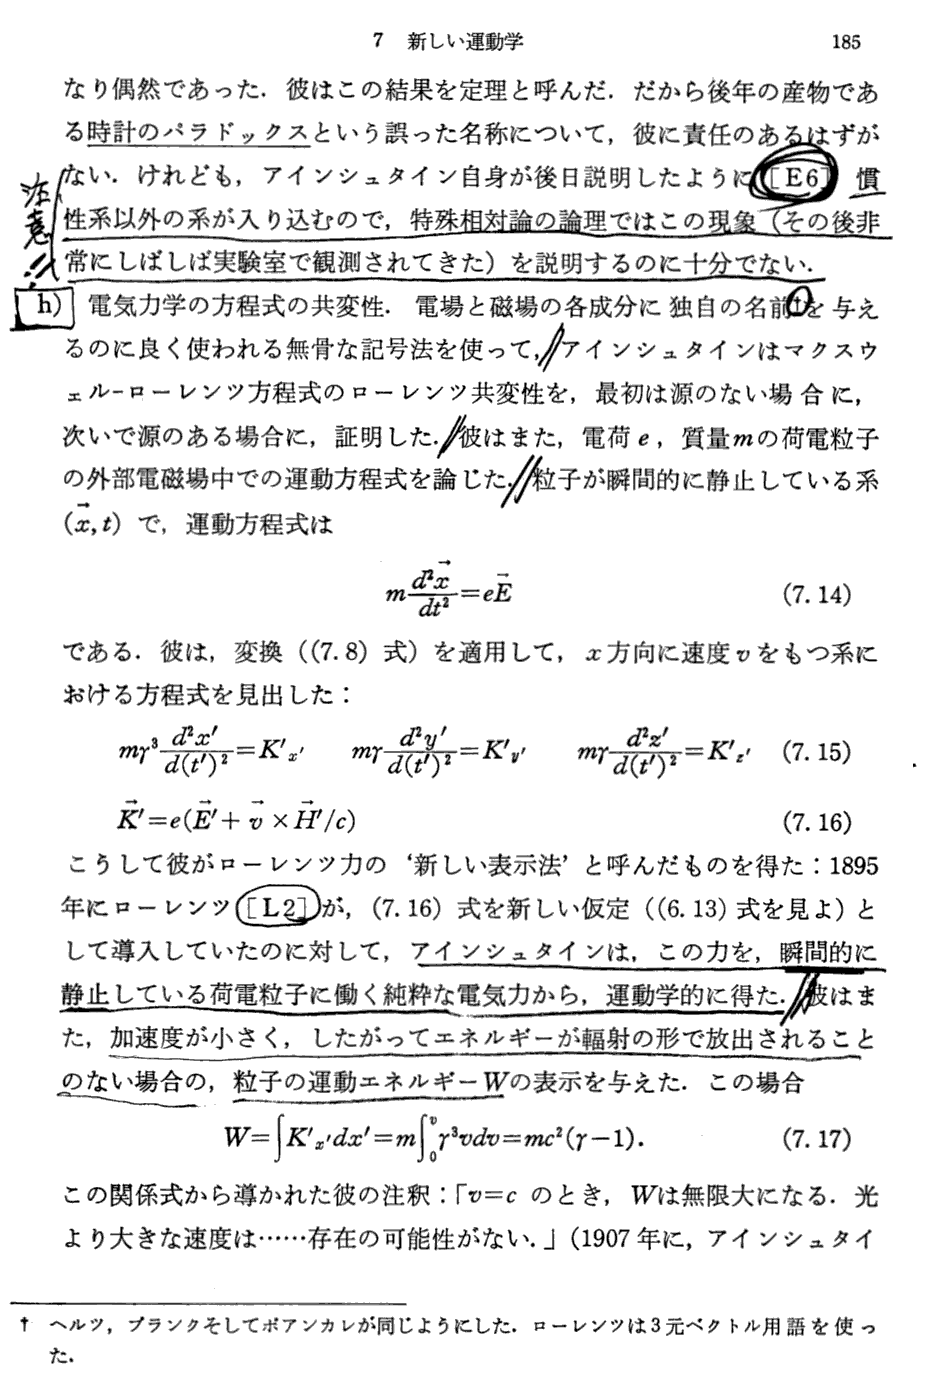 7 新しい運動学 185
なり偶然であった．彼はこの結果を定理と呼んだ．だから後年の産物であ
る時計のパラドックスという誤った名称について，彼に責任のあるはずが
ない．けれども，アインシュタイン自身が後日説明したように[E6] 慣
性系以外の系が入り込むので，特殊相対論の論理ではこの現象（その後非
常にしばしば実験室で観測されてきた）を説明するのに十分でない．
注意!!
h) 電気力学の方程式の共変性．電場と磁場の各成分に独自の名前†を与え
るのに良く使われる無骨な記号法を使って，アインシュタインはマクスウ
ェル-ローレンツ方程式のローレンツ共変性を，最初は源のない場合に，
次いで源のある場合に，証明した．彼はまた，電荷e，質量mの荷電粒子
の外部電磁場中での運動方程式を論じた．粒子が瞬間的に静止している系
(x⃗, t) で，運動方程式は
m d²x⃗/dt² = eE⃗ (7.14)
である．彼は，変換（(7.8) 式）を適用して，x方向に速度vをもつ系に
おける方程式を見出した：
mγ³ d²x′/d(t′)² = K′x′ mγ d²y′/d(t′)² = K′y′ mγ d²z′/d(t′)² = K′z′ (7.15)
K⃗′ = e(E⃗′ + v⃗ × H⃗′/c) (7.16)
こうして彼がローレンツ力の ‘新しい表示法’ と呼んだものを得た：1895
年にローレンツ[L2]が，(7.16) 式を新しい仮定（(6.13) 式を見よ）と
して導入していたのに対して，アインシュタインは，この力を，瞬間的に
静止している荷電粒子に働く純粋な電気力から，運動学的に得た．彼はま
た，加速度が小さく，したがってエネルギーが輻射の形で放出されること
のない場合の，粒子の運動エネルギーWの表示を与えた．この場合
W=∫K′x′dx′=m∫₀ᵛγ³vdv=mc²(γ−1). (7.17)
この関係式から導かれた彼の注釈：「v=c のとき，Wは無限大になる．光
より大きな速度は……存在の可能性がない．」(1907 年に，アインシュタイ
† ヘルツ，プランクそしてポアンカレが同じようにした．ローレンツは3元ベクトル用語を使っ
た．